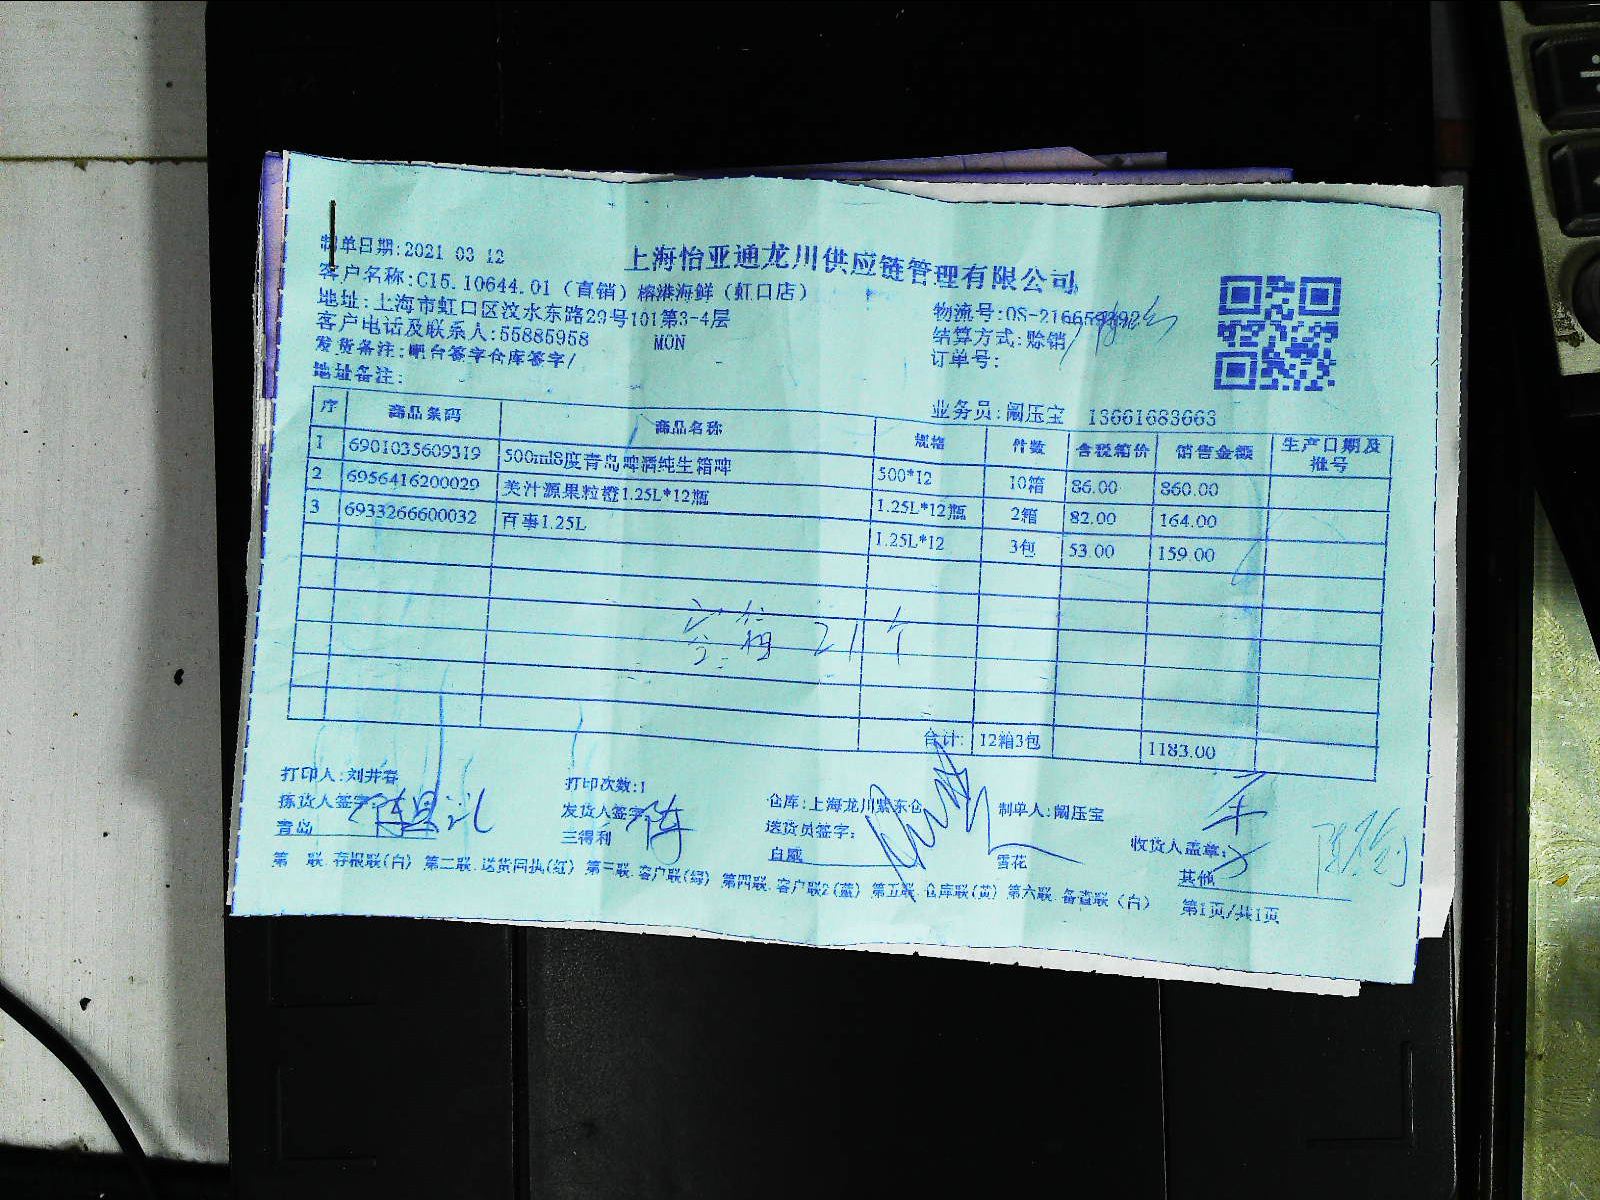 上海怡亚通龙川供应链管理有限公司
制单日期:2021 03 12
客户名称:C15.10644.01（直销）榕港海鲜（虹口店）
地址:上海市虹口区汶水东路29号101第3-4层
客户电话及联系人:55885958 MON
发货备注:吧台签字仓库签字/
地址备注:
物流号:OS-21665
结算方式:赊销
订单号:
业务员:阚压宝 13661683663
序 商品条码 商品名称 规格 件数 含税箱价 销售金额 生产日期及批号
1 6901035609319 500ml8度青岛啤酒纯生箱啤 500*12 10箱 86.00 860.00
2 6956416200029 美汁源果粒橙1.25L*12瓶 1.25L*12瓶 2箱 82.00 164.00
3 6933266600032 百事1.25L 1.25L*12 3包 53.00 159.00
箱 21个
合计: 12箱3包 1183.00
打印人:刘井春 打印次数:1 仓库:上海龙川紫东仓 制单人:阚压宝
拣货人签字: 发货人签字: 送货员签字: 收货人盖章:
青岛 三得利 百威 雪花 其他
第一联.存根联(白) 第二联.送货回执(红) 第三联.客户联(绿) 第四联.客户联2(蓝) 第五联.仓库联(黄) 第六联.备查联（白） 第1页/共1页